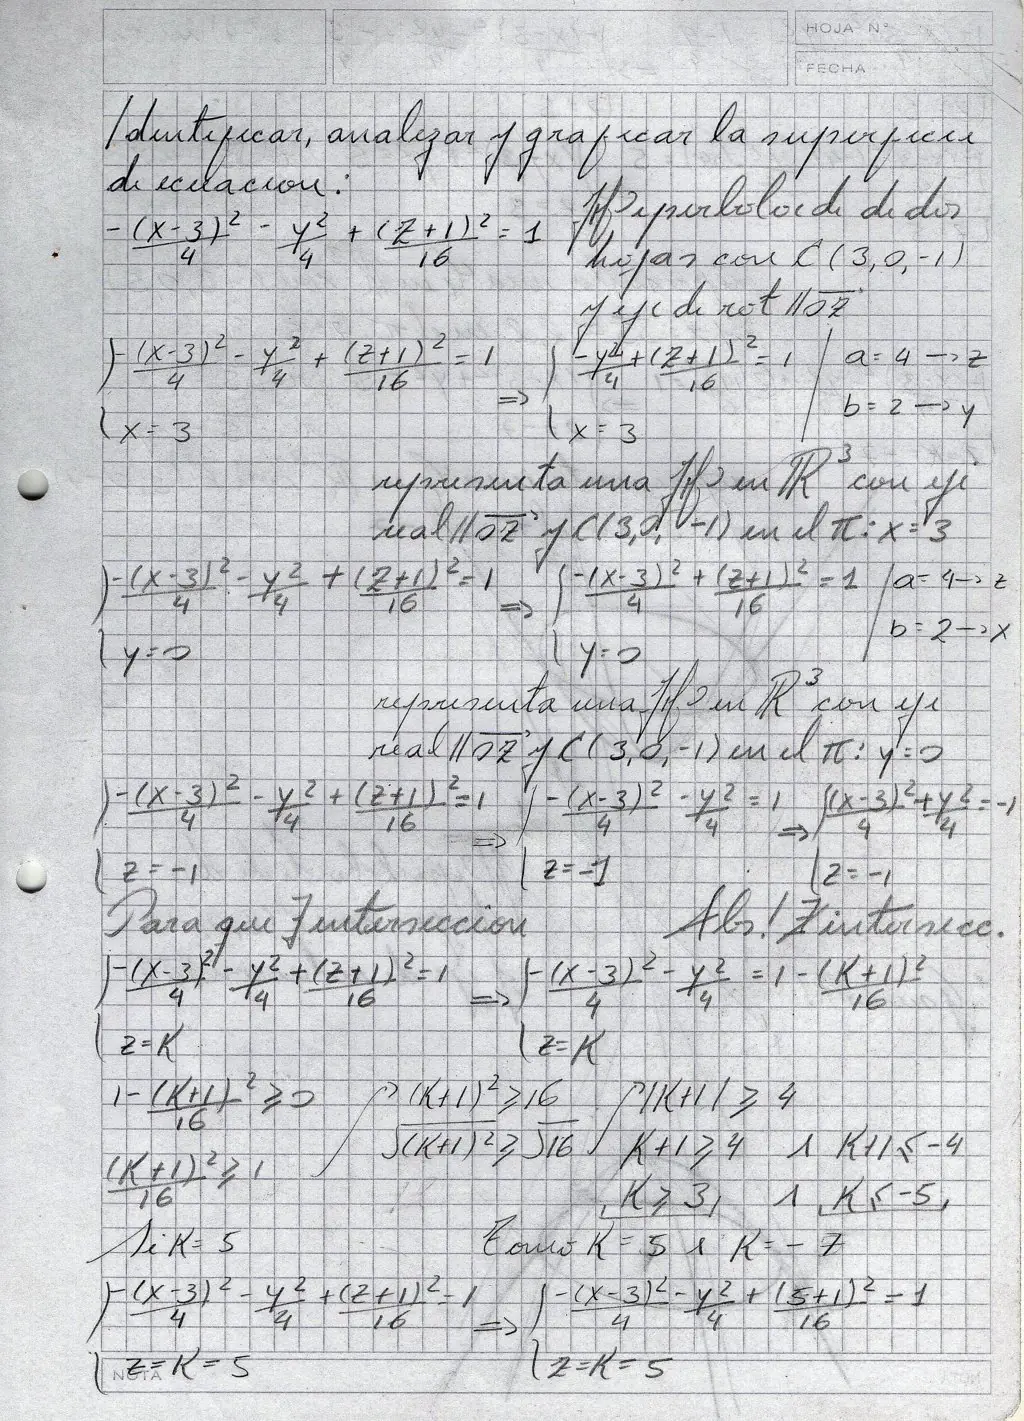 HOJA Nº
FECHA
Identificar, analizar y graficar la superficie
de ecuacion:
-(x-3)²/4 - y²/4 + (z+1)²/16 = 1
Hiperboloide de dos
hojas con C(3,0,-1)
y eje de rot // OZ
{ -(x-3)²/4 - y²/4 + (z+1)²/16 = 1 => { -y²/4 + (z+1)²/16 = 1 / a=4 → z
{ x=3 { x=3 b=2 → y
representa una H en ℝ³ con eje
real // OZ y C(3,0,-1) en el π: x=3
{ -(x-3)²/4 - y²/4 + (z+1)²/16 = 1 => { -(x-3)²/4 + (z+1)²/16 = 1 / a=4 → z
{ y=0 { y=0 b=2 → x
representa una H en ℝ³ con eje
real // OZ y C(3,0,-1) en el π: y=0
{ -(x-3)²/4 - y²/4 + (z+1)²/16 = 1 => { -(x-3)²/4 - y²/4 = 1 => { (x-3)²/4 + y²/4 = -1
{ z=-1 { z=-1 { z=-1
Para que ∃ interseccion Abs! ∄ intersecc.
{ -(x-3)²/4 - y²/4 + (z+1)²/16 = 1 => { -(x-3)²/4 - y²/4 = 1 - (K+1)²/16
{ z=K { z=K
1 - (K+1)²/16 ≥ 0 (K+1)² ≥ 16 |K+1| ≥ 4
(K+1)²/16 ≥ 1 √(K+1)² ≥ √16 K+1 ≥ 4 ∧ K+1 ≤ -4
K ≥ 3 ∧ K ≤ -5
Si K = 5 Tomo K = 5 ∧ K = -7
{ -(x-3)²/4 - y²/4 + (z+1)²/16 = 1 => { -(x-3)²/4 - y²/4 + (5+1)²/16 = 1
{ z=K=5 { z=K=5
NOTA